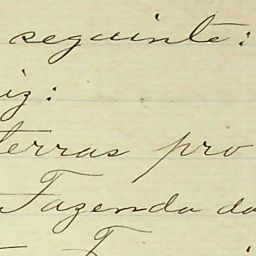 seguinte:
iz:
terras pro
Fazenda da